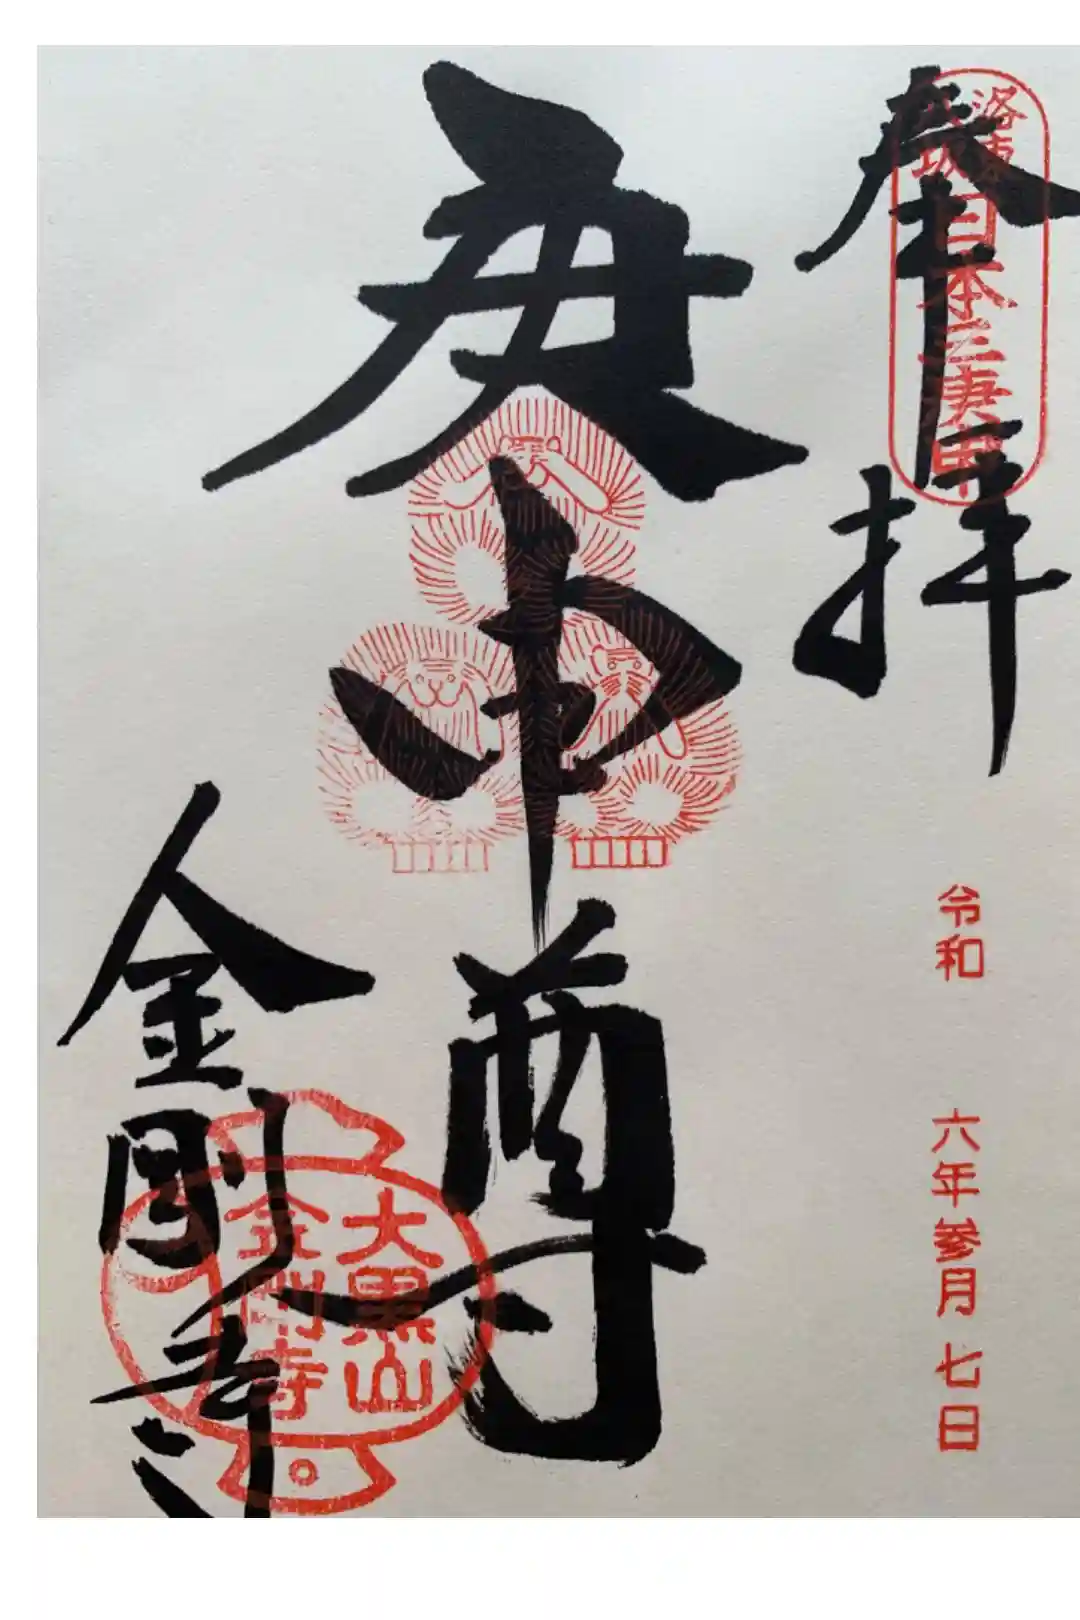 奉拝
洛東
八坂
日本三庚申
令和 六年参月七日
庚申尊
金剛寺
大黒山
金剛寺